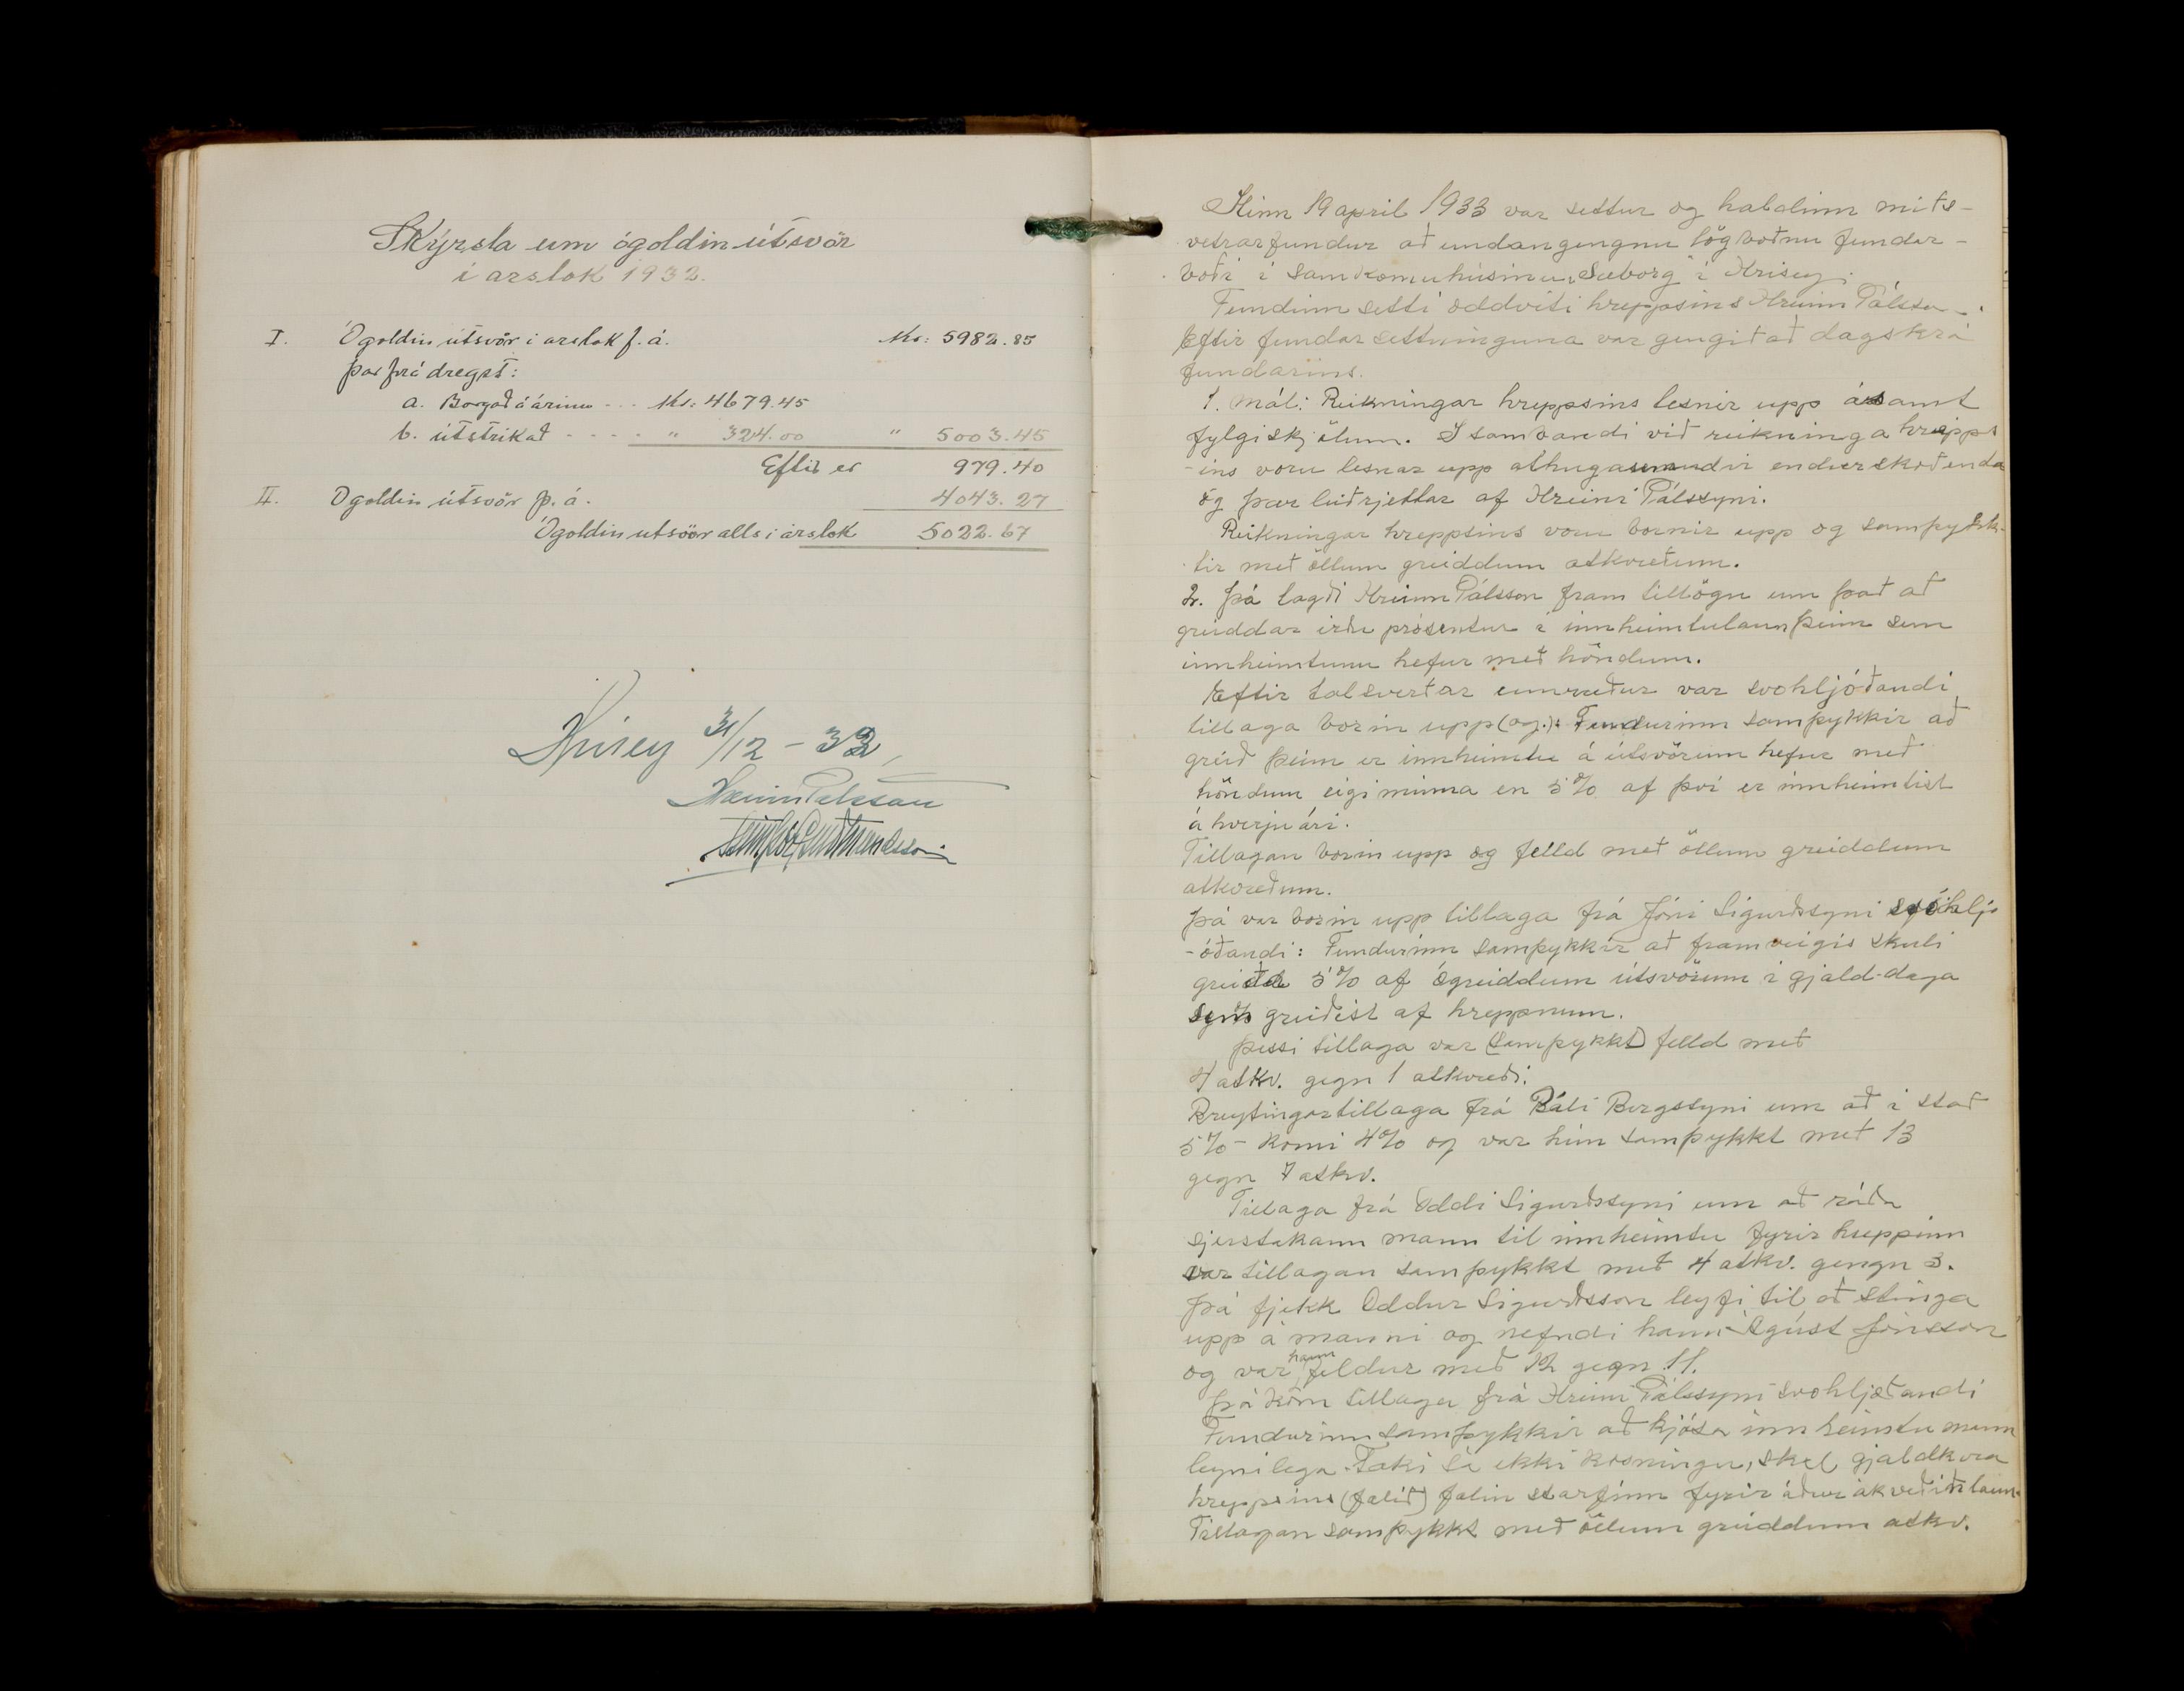 Skýrsla um ógoldin útsvör
í arslok 1932.
I. Ógoldin útsvör í arslok f. á. Kr: 5982.85
þar frá dregst:
a. Borgað á árinu - - - Kr: 4679.45
b. útstrikað - - - - " 324.00 " 5003.45
Eftir er 979.40
II. Ogoldin útsvör þ. á. 4043.27
Ógoldin utsvör alls í árslok 5022.67
Hrísey 31/12 - 32
Hreinn Pálsson
Hinn 19 april 1933 var settur og haldinn mits-
vetrarfundur að undangengnu lögboðnu fundar-
boði í samkomuhúsinu „Sæborg" í Hrisey.
Fundinn setti oddviti hreppsins Hreinn Pálsson.
Eftir fundarsettninguna var gengið að dagskrá
fundarins.
1. mál: Reikningar hreppsins lesnir upp ásamt
fylgiskjölum. I sambandi við reikninga hrepps
-ins voru lesnar upp athugasemdir endurskoðenda
og þær leiðrjettar af Hreini Pálssyni.
Reikningar hreppsins voru bornir upp og samþykk-
tir með öllum greiddum atkvæðum.
2. Þá lagði Hreinn Pálsson fram tillögu um það að
greiddar irðu prósentur í innheimtulaun þeim sem
innheimtunu hefur með höndum.
Eftir talsverðar umræður var svohljóðandi
tillaga borin upp (og.): Fundurinn samþykkir að
greið þeim er innheimtu á útsvörum hefur með
höndum eigi minna en 5% af því er innheimtist
á hverju ári.
Tillagan borin upp og felld með öllum greiddum
atkvæðum.
Þá var borin upp tillaga frá Jóni Sigurðssyni svohljó
-óðandi: Fundurinn samþykkir að framveigis skuli
greiða 5% af ógreiddum útsvörum í gjald-daga
sem greiðist af hreppnum.
Þessi tillaga var (samþykkt) felld með
4 atkv. gegn 1 atkvæði.
Breytingartillaga frá Páli Bergssyni um að í stað
5% - komi 4% og var hún samþykkt með 13
gegn 7 atkv.
Tillaga frá Oddi Sigurðssyni um að ráða
sjerstakann mann til innheimtu fyrir hreppinn
var tillagan samþykkt með 4 atkv. gengn 3.
Þá fjekk Oddur Sigurðsson leyfi til að stinga
upp á manni og nefndi hann Ágúst Jónsson
og var hann feldur með 12 gegn 11.
Þá kom tillaga frá Hreini Pálssyni svohljóðandi
Fundurinn samþykkir að kjósa innheimtu mann
leynilega. Taki sá ekki kosningu, skal gjaldkera
hreppsins (falið) falin starfinn fyrir áður ákveðin laun.
Tillagan samþykkt með öllum greiddum atkv.